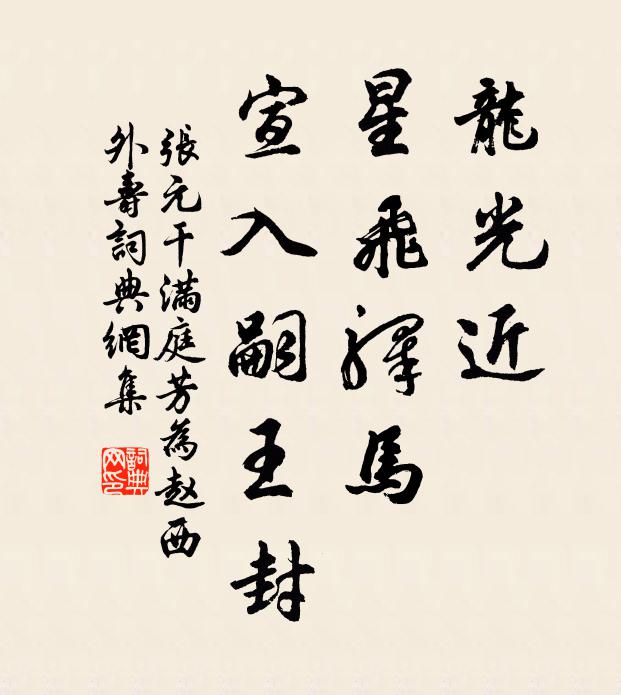 龍光近
星飛驛馬
宣入嗣王封
張元干滿庭芳為赵西
外壽詞典網集
詞典网印